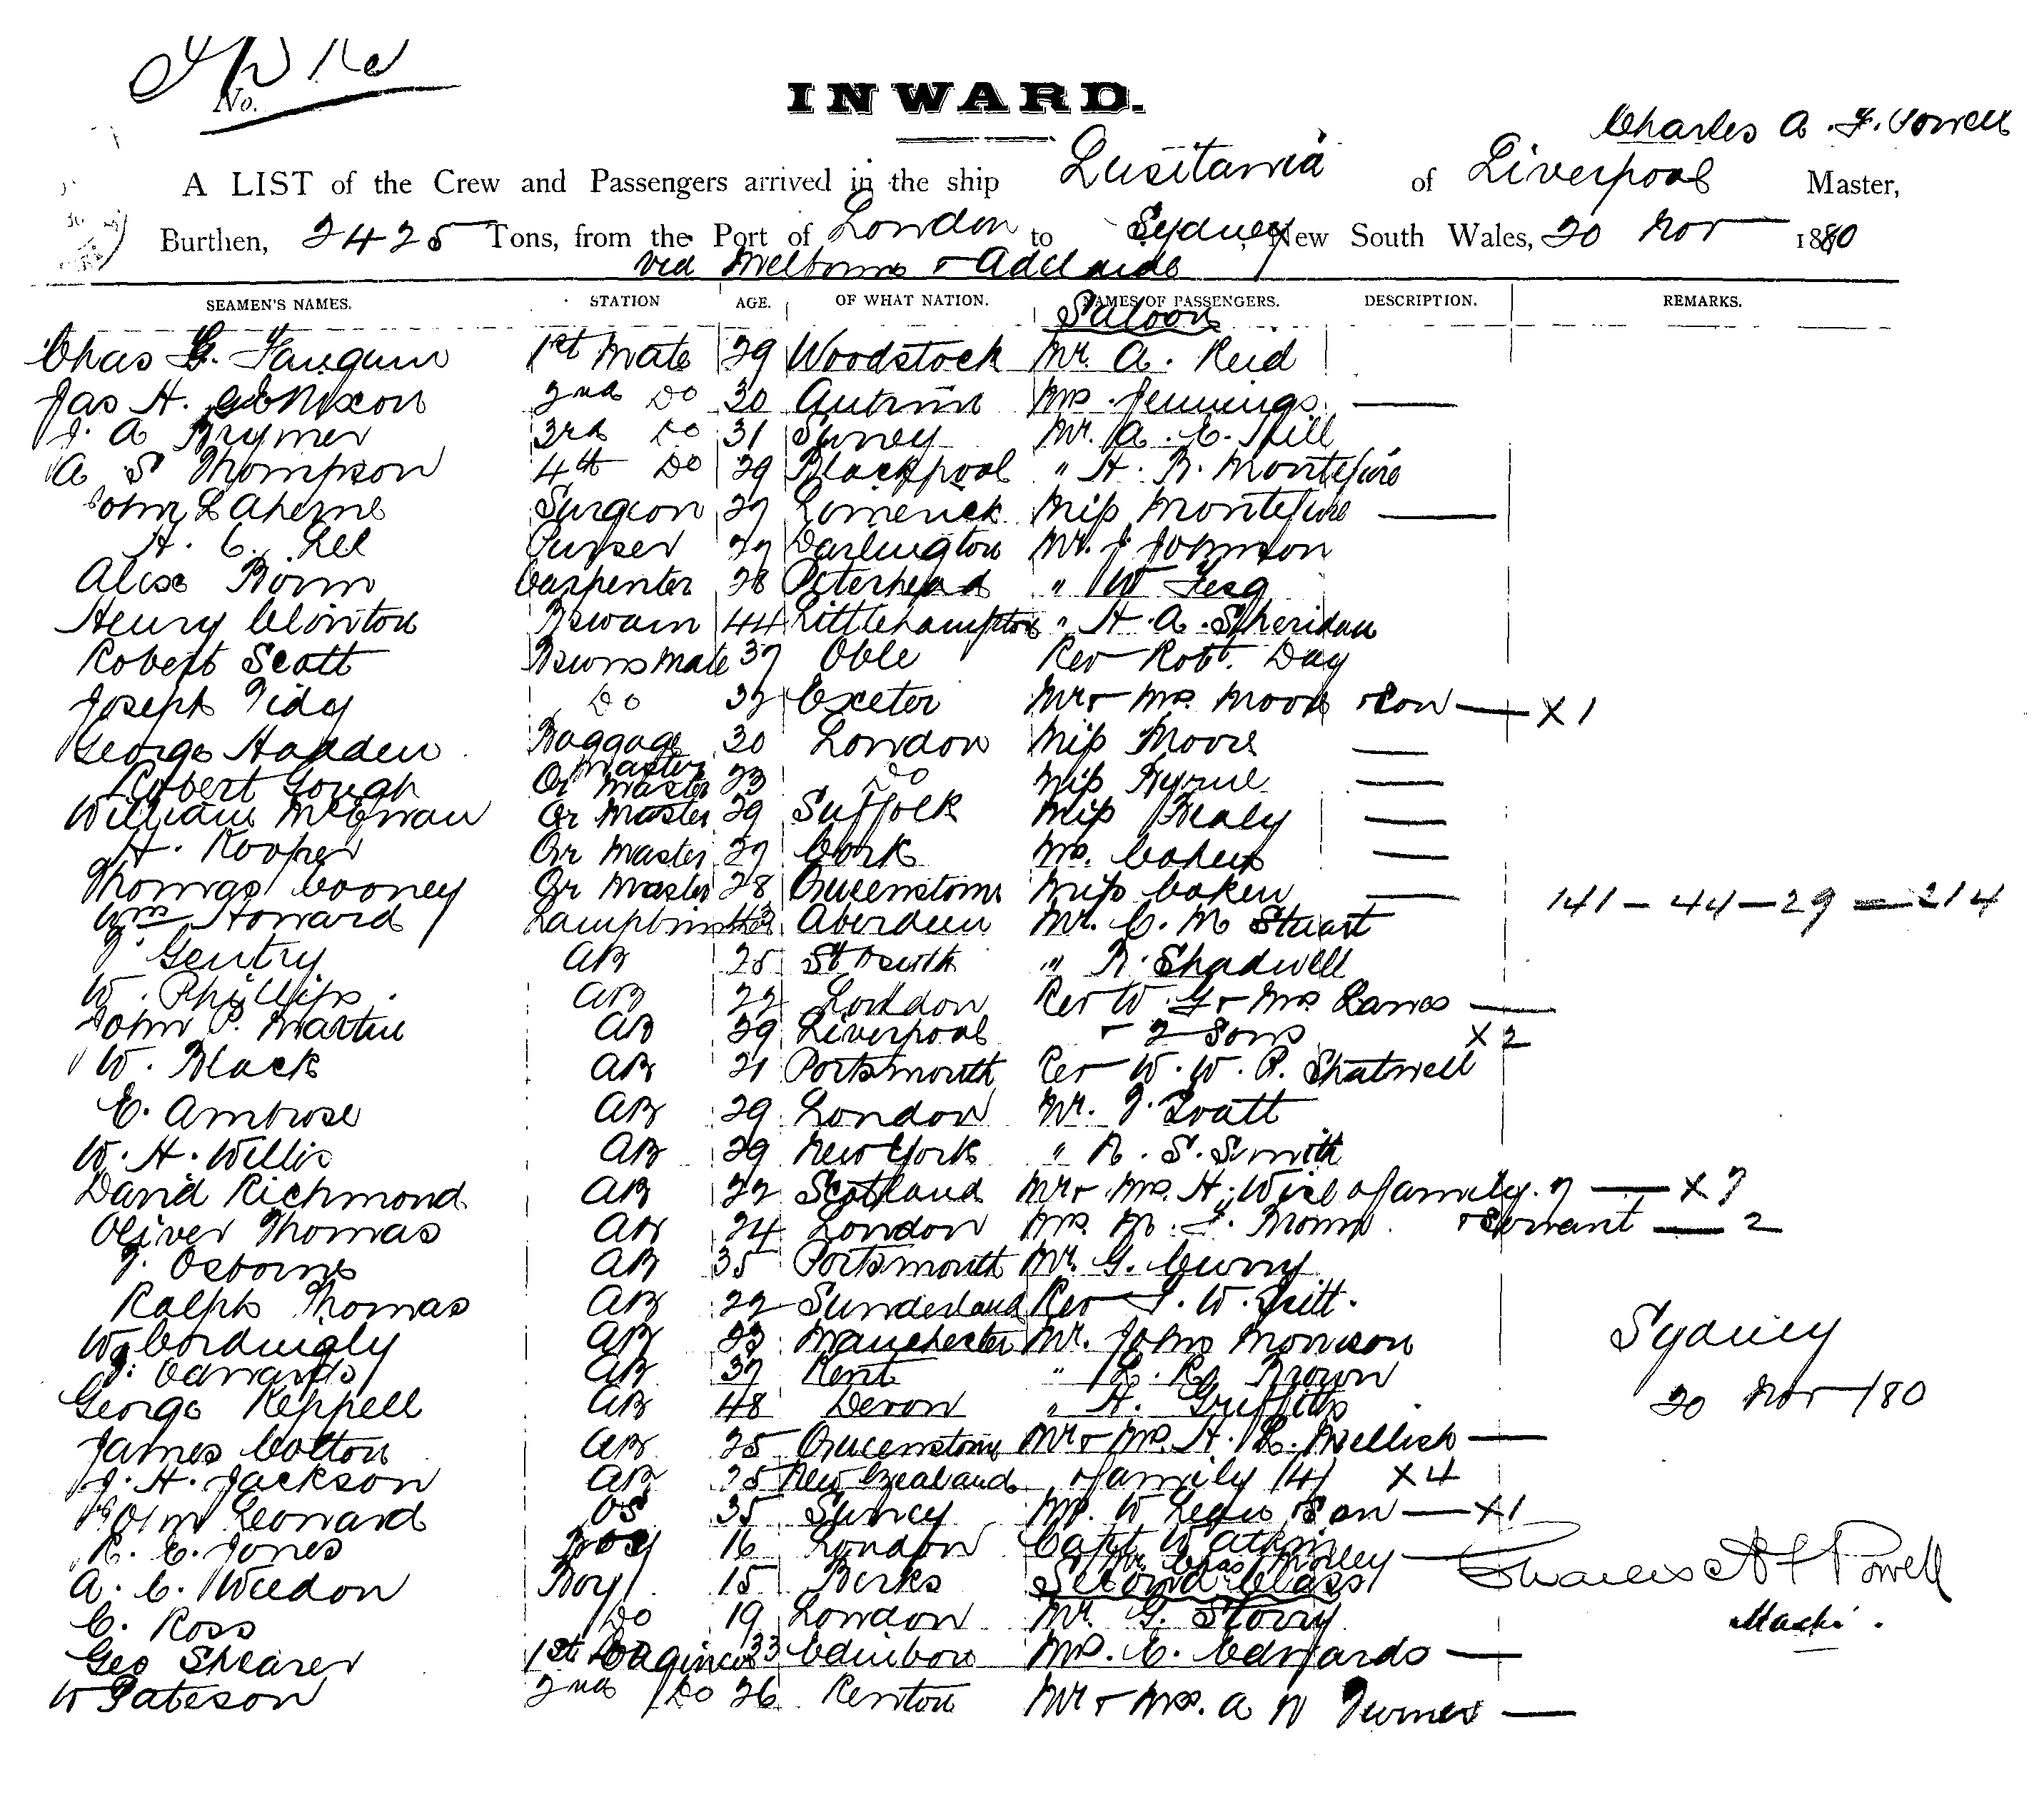 No.
INWARD.
Charles A. F. Powell
A LIST of the Crew and Passengers arrived in the ship Lusitania of Liverpool Master,
Burthen, 2425 Tons, from the Port of London to Sydney, New South Wales, 20 Nov 1880
via Melbourne & Adelaide
SEAMEN'S NAMES. STATION AGE. OF WHAT NATION. NAMES OF PASSENGERS. DESCRIPTION. REMARKS.
Saloon
Chas 1st Mate 29 Woodstock Mr. A. Reid
Jas H. 2nd Do 30 Antrim Mrs. Jennings
J. A Rymer 3rd Do 31 Surrey Mr. A. E. Hill
A S Thompson 4th Do 29 Blackpool " H. B. Montefiore
John Aherne Surgeon 27 Limerick Miss Montefiore
H. C. Purser 27 Darlington Mr. J Johnson
Carpenter 28 Peterhead " W
Henry Clinton Bswain 44 Littlehampton " H. A. Sheridan
Robert Scott Bswns Mate 37 Rev Robt. Day
Joseph Tidy Do 37 Exeter Mr & Mrs Moore & Son X 1
George Hadden Baggage Master 30 London Miss Moore
Robert Gough Qr Master 23 Do Miss
William McEwan Qr Master 29 Suffolk Miss Healy
H. Kooper Qr Master 27 Cork Mrs. Cohen
Thomas Cooney Qr Master 28 Queenstown Miss Cohen 141 - 44 - 29 = 214
Wm Howard Lamptrimmer Aberdeen Mr. C. M Stuart
Gentry AB 25 St Osyth " R. Shadwell
W. Phillips AB 22 London Rev W. G & Mrs Lawes
John P. Martin AB 29 Liverpool & 2 Sons X 2
W. Black AB 21 Portsmouth Rev W. W. P. Shatwell
E. Ambrose AB 29 London Mr. J. Pratt
W. H. Willis AB 29 New York " R. S. Smith
David Richmond AB 22 Scotland Mr & Mrs. H. Wise & family. 7 X 7
Oliver Thomas AB 24 London Mrs. M. & Servant 2
J. Osborne AB 35 Portsmouth Mr. G. Curry
Ralph Thomas AB 22 Sunderland Rev W.
W Cordingly AB 23 Manchester Mr. John Morrison
J. Edwards AB 37 Kent " Brown
George Keppell AB 48 Devon " H. Griffiths
James Colton AB 25 Queenstown Mr & Mrs. H. L. Mellish
J. H. Jackson AB 25 New Zealand & family (4) X 4
John Leonard OS 35 Surrey Mrs. W & Son X 1
R. E. Jones Boy 16 London Capt Watkin
A. C. Weedon Boy 15 Berks
Second Class
C. Ross Do 19 London Mr. G. Storry
Geo Shearer 1st Engineer 33 Edinboro Mrs. E. Edwards
W Pateson 2nd Do 26 Renton Mr & Mrs. A W Turner
Sydney
20 Nov /80
Charles A F Powell
Master.